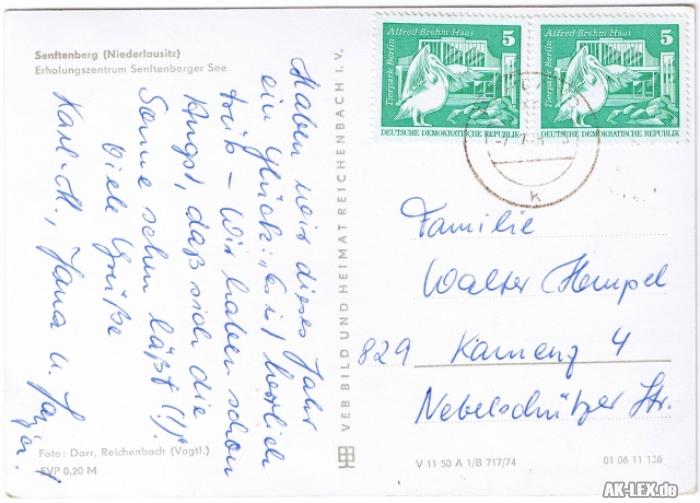 Senftenberg (Niederlausitz)
Erholungszentrum Senftenberger See
Haben wir dieses Jahr
ein Glück. Es ist herrlich
trüb – Wir haben schon
Angst, daß sich die
Sonne sehen läßt (!)!
Viele Grüße
Karl-H., Jana u.
Foto: Darr, Reichenbach (Vogtl.)
EVP 0,20 M
VEB BILD UND HEIMAT REICHENBACH i. V.
Alfred-Brehm-Haus 5
Tierpark Berlin
DEUTSCHE DEMOKRATISCHE REPUBLIK
Alfred-Brehm-Haus 5
Tierpark Berlin
DEUTSCHE DEMOKRATISCHE REPUBLIK
k
Familie
Walter Hempel
829 Kamenz 4
Nebelschützer Str.
V 11 50 A 1/B 717/74
01 06 11 136
AK-LEX.de